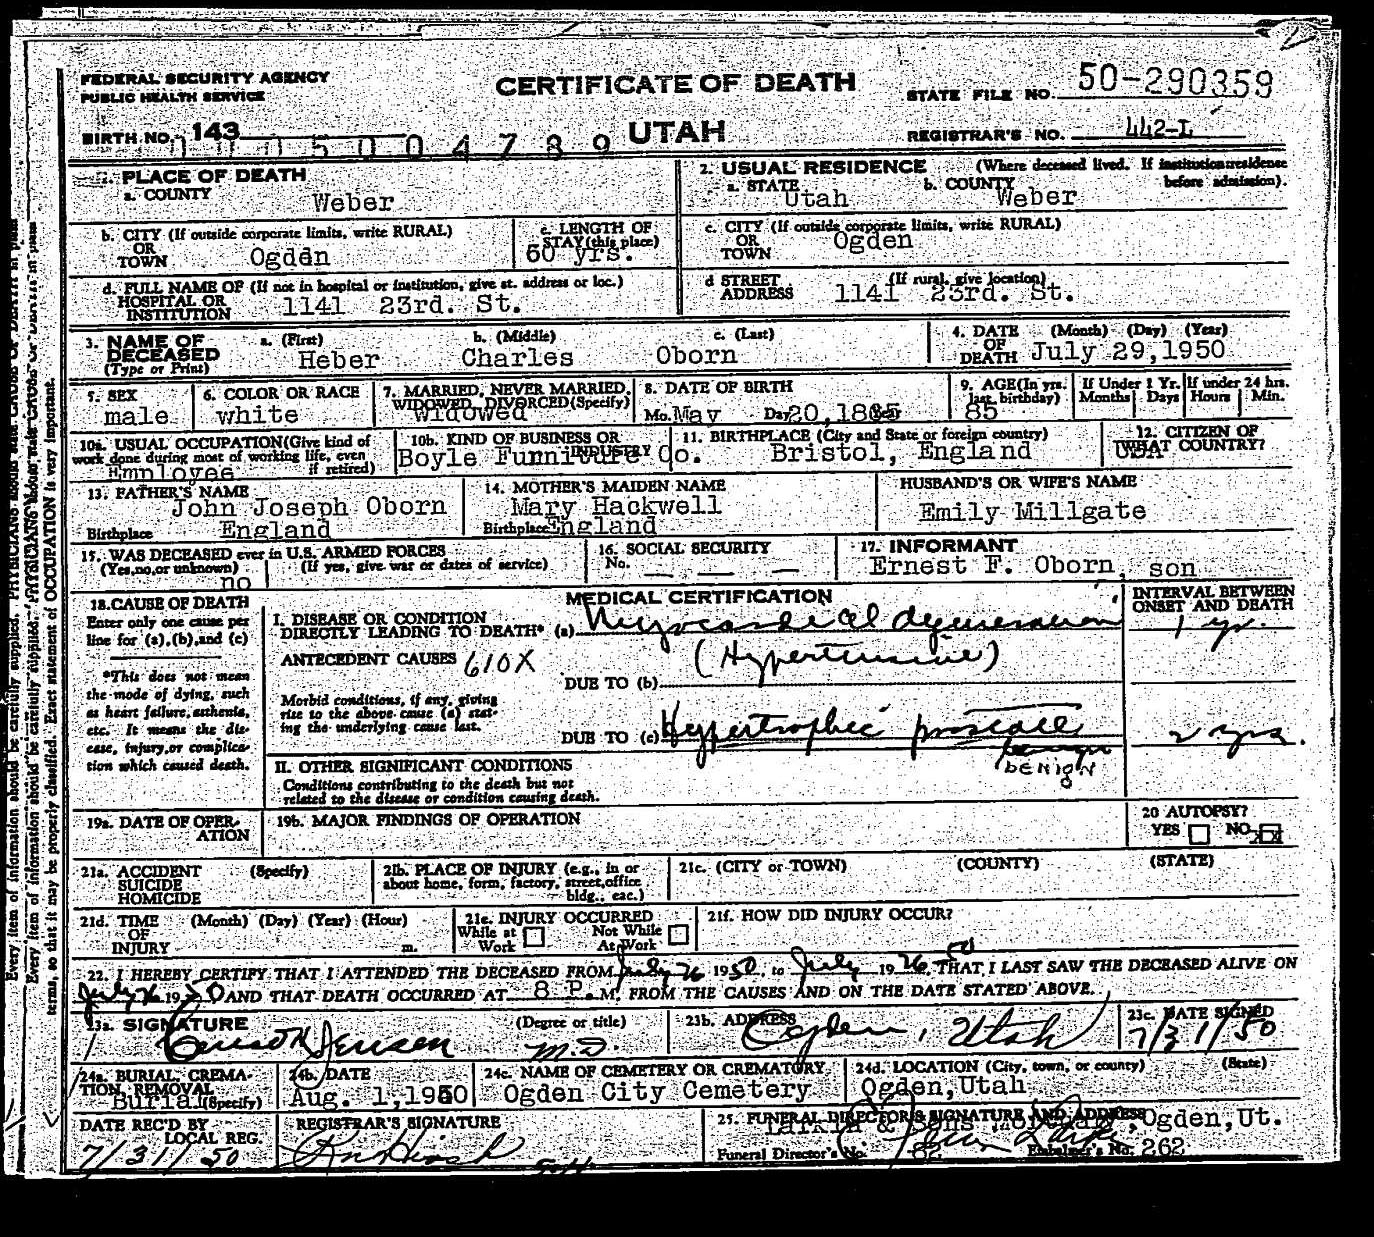 FEDERAL SECURITY AGENCY
PUBLIC HEALTH SERVICE
CERTIFICATE OF DEATH
STATE FILE NO. 50-290359
BIRTH NO. 143
UTAH
REGISTRAR'S NO. 442-L
005004789
1. PLACE OF DEATH
a. COUNTY Weber
2. USUAL RESIDENCE (Where deceased lived. If institution: residence before admission).
a. STATE Utah b. COUNTY Weber
b. CITY (If outside corporate limits, write RURAL) OR TOWN Ogden
c. LENGTH OF STAY (this place) 60 yrs.
c. CITY (If outside corporate limits, write RURAL) OR TOWN Ogden
d. FULL NAME OF (If not in hospital or institution, give st. address or loc.) HOSPITAL OR INSTITUTION 1141 23rd. St.
d STREET ADDRESS (If rural, give location) 1141 23rd. St.
3. NAME OF DECEASED (Type or Print) a. (First) Heber b. (Middle) Charles c. (Last) Oborn
4. DATE OF DEATH (Month) (Day) (Year) July 29,1950
5. SEX male
6. COLOR OR RACE white
7. MARRIED, NEVER MARRIED, WIDOWED, DIVORCED (Specify) Widowed
8. DATE OF BIRTH Mo. May Day 20,1865
9. AGE (In yrs. last birthday) 85
If Under 1 Yr. Months Days
If under 24 hrs. Hours Min.
10a. USUAL OCCUPATION (Give kind of work done during most of working life, even if retired) Employee
10b. KIND OF BUSINESS OR INDUSTRY Boyle Furniture Co.
11. BIRTHPLACE (City and State or foreign country) Bristol, England
12. CITIZEN OF WHAT COUNTRY? USA
13. FATHER'S NAME John Joseph Oborn
Birthplace England
14. MOTHER'S MAIDEN NAME Mary Hackwell
Birthplace England
HUSBAND'S OR WIFE'S NAME Emily Millgate
15. WAS DECEASED ever in U.S. ARMED FORCES (Yes, no, or unknown) no (If yes, give war or dates of service)
16. SOCIAL SECURITY No. — — —
17. INFORMANT Ernest F. Oborn, son
MEDICAL CERTIFICATION
INTERVAL BETWEEN ONSET AND DEATH
18. CAUSE OF DEATH
Enter only one cause per line for (a), (b), and (c)
*This does not mean the mode of dying, such as heart failure, asthenia, etc. It means the disease, injury, or complication which caused death.
I. DISEASE OR CONDITION DIRECTLY LEADING TO DEATH* (a) Myocardial degeneration 1 yr.
(Hypertensive)
ANTECEDENT CAUSES 610X
DUE TO (b)
Morbid conditions, if any, giving rise to the above cause (a) stating the underlying cause last.
DUE TO (c) Hypertrophic prostate 2 yrs.
benign
BENIGN
II. OTHER SIGNIFICANT CONDITIONS
Conditions contributing to the death but not related to the disease or condition causing death.
19a. DATE OF OPERATION
19b. MAJOR FINDINGS OF OPERATION
20 AUTOPSY?
YES NO XX
21a. ACCIDENT SUICIDE HOMICIDE (Specify)
21b. PLACE OF INJURY (e.g., in or about home, form, factory, street, office bldg., eac.)
21c. (CITY or TOWN) (COUNTY) (STATE)
21d. TIME OF INJURY (Month) (Day) (Year) (Hour) m.
21e. INJURY OCCURRED While at Work Not While At Work
21f. HOW DID INJURY OCCUR?
22. I HEREBY CERTIFY THAT I ATTENDED THE DECEASED FROM July 26 1950, to July 1926 50, THAT I LAST SAW THE DECEASED ALIVE ON
July 26 1950 AND THAT DEATH OCCURRED AT 8 P. M. FROM THE CAUSES AND ON THE DATE STATED ABOVE.
23a. SIGNATURE Jensen (Degree or title) M.D.
23b. ADDRESS Ogden, Utah
23c. DATE SIGNED 7/31/50
24a. BURIAL, CREMATION, REMOVAL (Specify) Burial
24b. DATE Aug. 1,1950
24c. NAME OF CEMETERY OR CREMATORY Ogden City Cemetery
24d. LOCATION (City, town, or county) (State) Ogden,Utah
DATE REC'D BY LOCAL REG. 7/31/50
REGISTRAR'S SIGNATURE
25. FUNERAL DIRECTOR'S SIGNATURE AND ADDRESS
Larkin & Sons Mortuary, Ogden,Ut.
Funeral Director's No. 82 Embalmer's No. 262
Every item of information should be carefully supplied.
terms, so that it may be properly classified. Exact statement of OCCUPATION is very important.